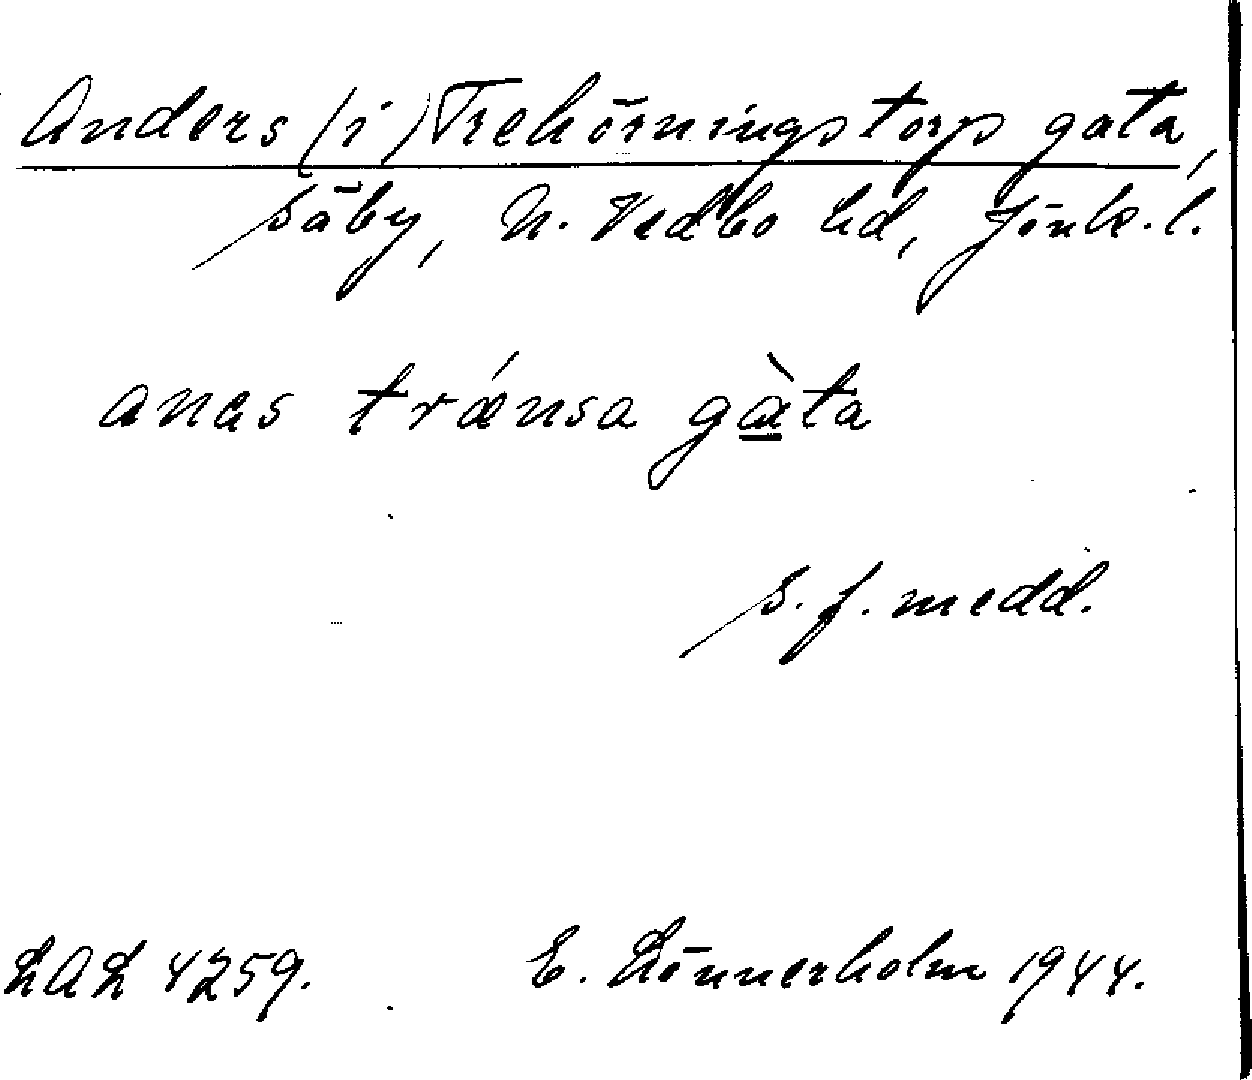 Anders (i) Trehörningstorp gata,
Säby, N. Vedbo hd, Jönk. l.
anas trǽnsa gàta
S. f. medd.
LAL 4259. E. Lönnerholm 1944.